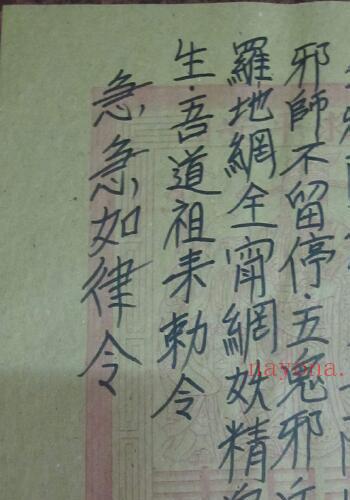 邪師不留停.五鬼邪
羅地網全宵網妖精
生.吾道祖来勅令
急急如律令
nayona.